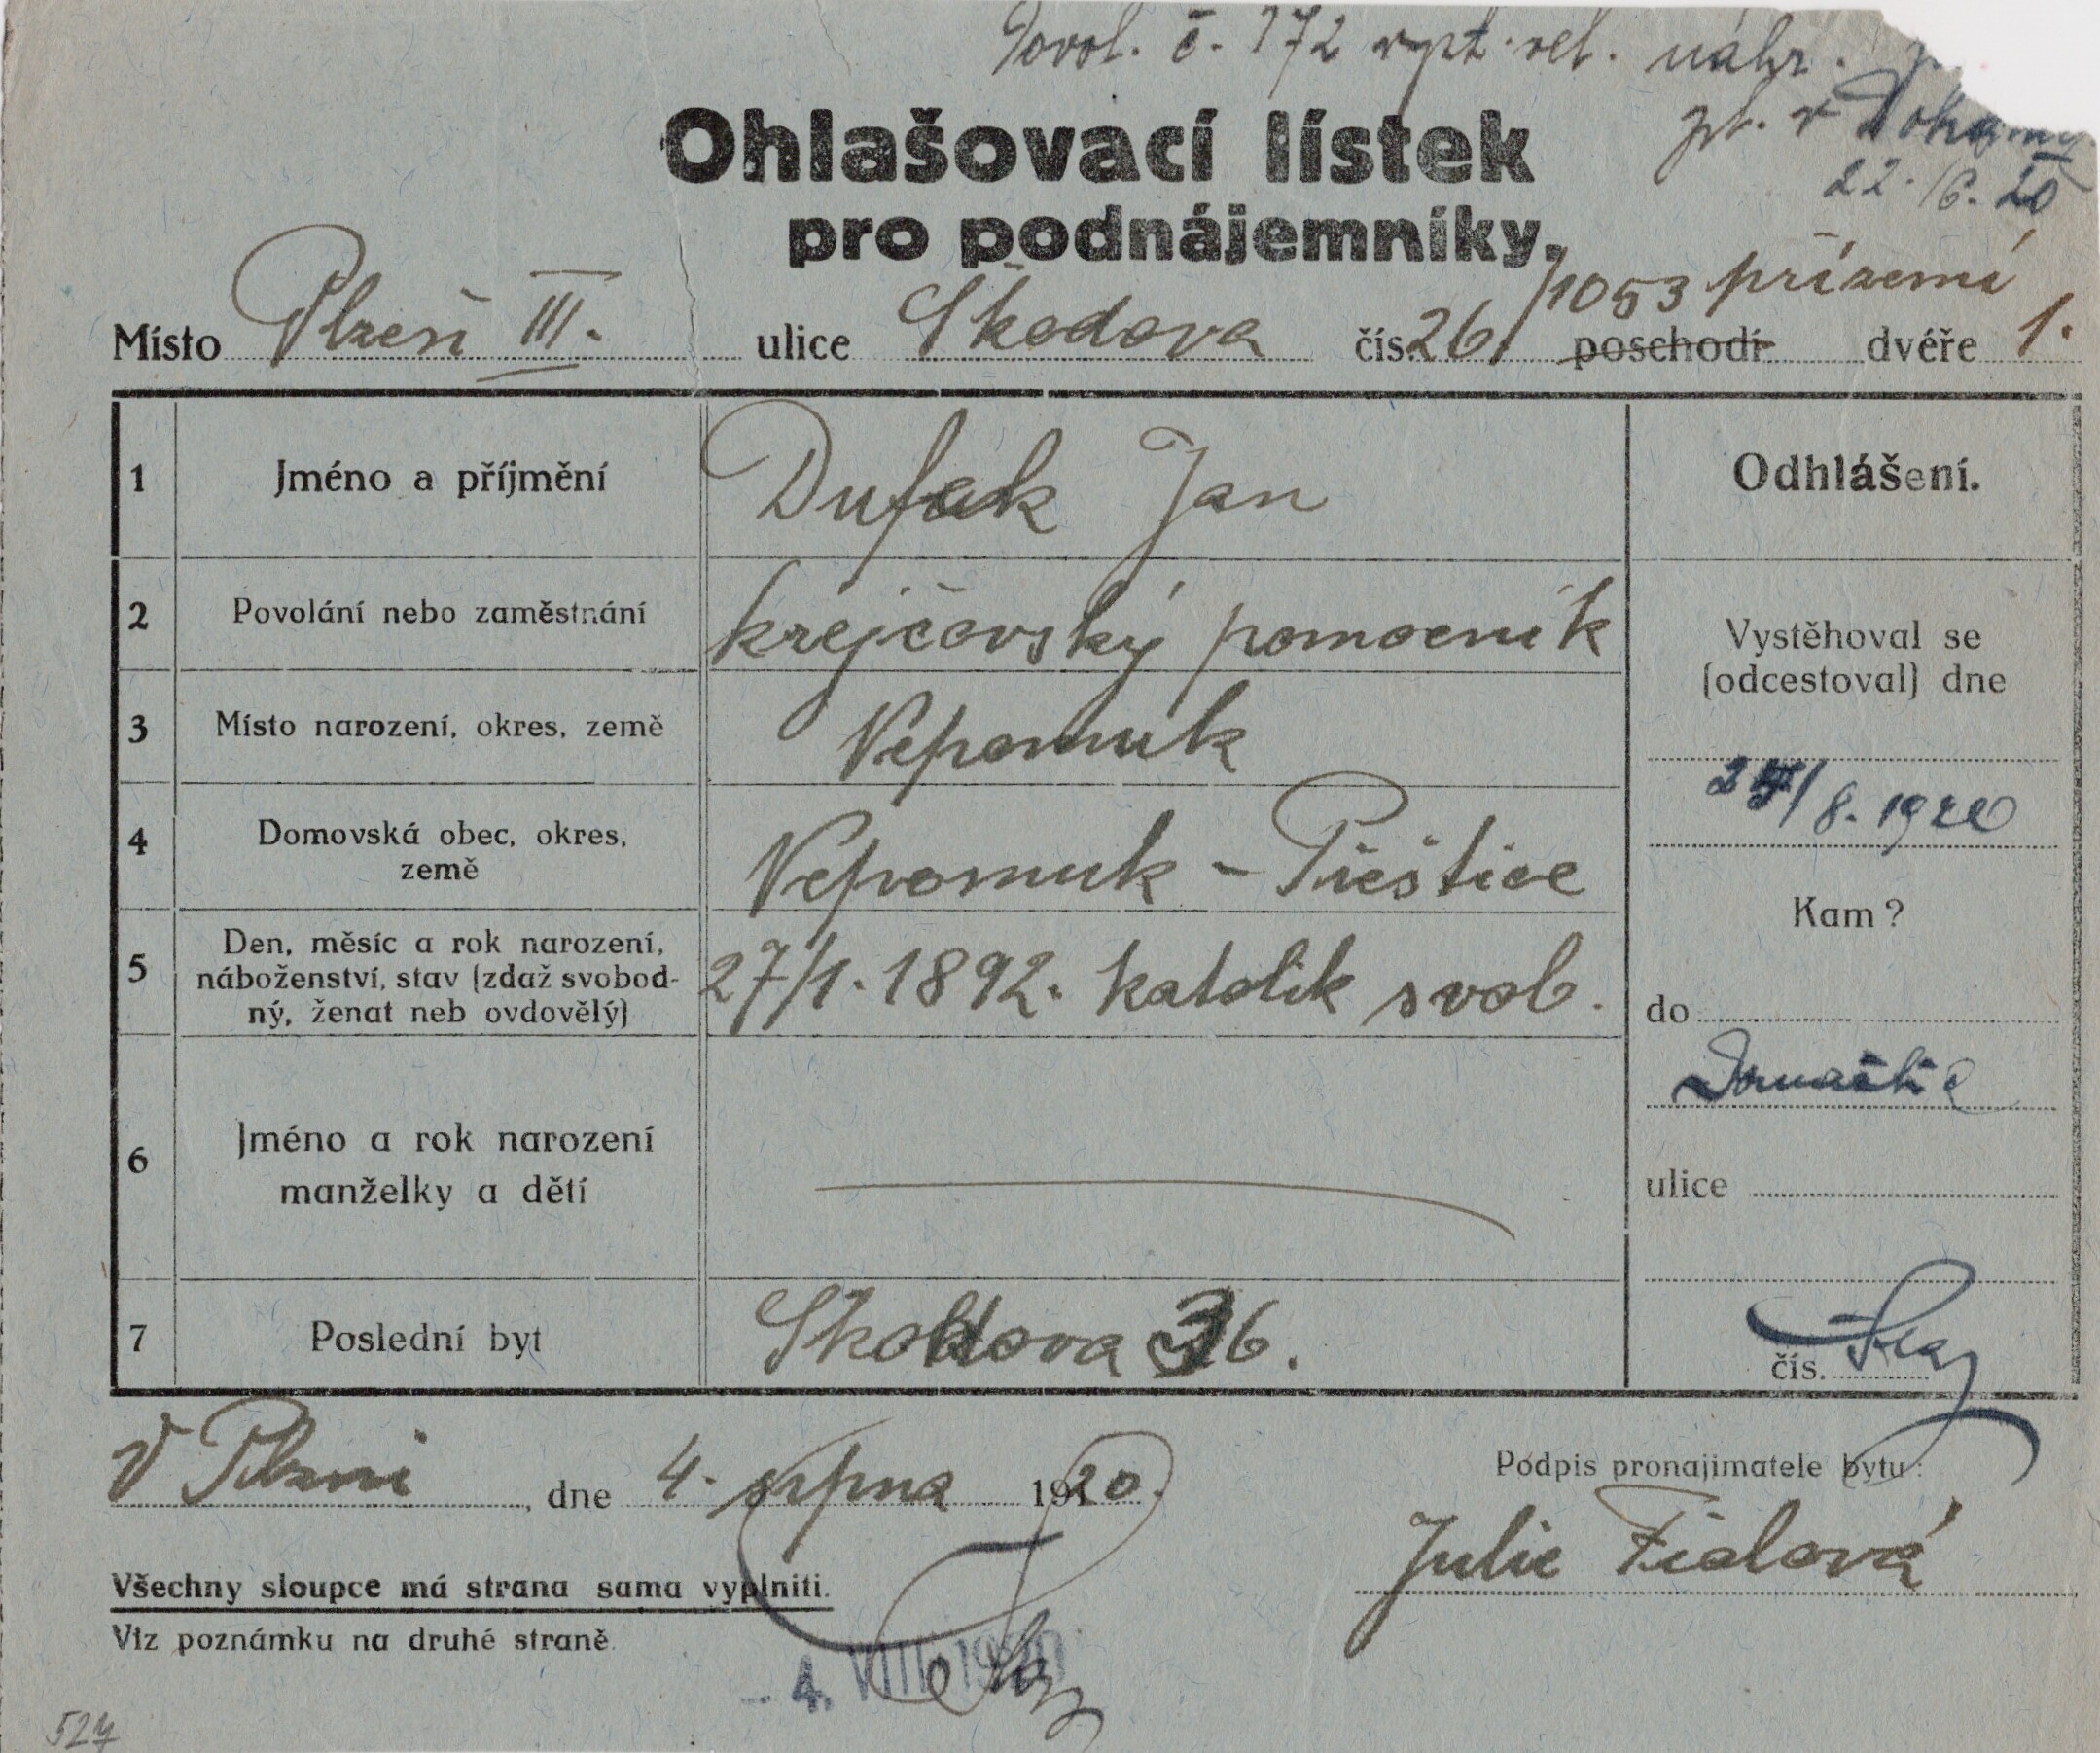 Povol. č. 172 vyst. rel. náhr.
22./6. 20
Ohlašovací lístek
pro podnájemníky.
Místo Plzeň III. ulice Škodova čís. 26/1053 přízemí poschodí dvéře 1.
1 Jméno a příjmění Dufek Jan
Odhlášení.
2 Povolání nebo zaměstnání krejčovský pomocník
Vystěhoval se
(odcestoval) dne
3 Místo narození, okres, země Nepomuk
/8. 1920
4 Domovská obec, okres,
země
Nepomuk - Přeštice
Kam?
5 Den, měsíc a rok narození,
náboženství, stav (zdaž svobod-
ný, ženat neb ovdovělý)
27/1. 1892. katolík svob.
do
Domažlic
6 Jméno a rok narození
manželky a dětí
ulice
7 Poslední byt Škodova 36.
čís.
V Plzni, dne 4. srpna 1920.
Podpis pronajimatele bytu:
Julie Fialová
Všechny sloupce má strana sama vyplniti.
Viz poznámku na druhé straně.
4. VIII. 1920
527